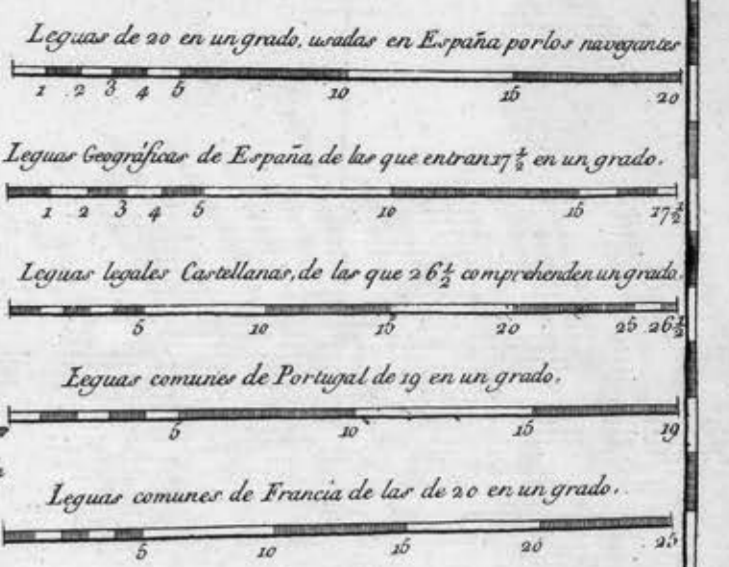 Leguas de 20 en un grado, usadas en España por los navegantes
1 2 3 4 5 10 15 20
Leguas Geográficas de España, de las que entran 17 1/2 en un grado.
1 2 3 4 5 10 15 17 1/2
Leguas legales Castellanas, de las que 26 1/2 comprehenden un grado.
5 10 15 20 25 26 1/2
Leguas comunes de Portugal de 19 en un grado.
5 10 15 19
Leguas comunes de Francia de las de 20 en un grado.
5 10 15 20 25